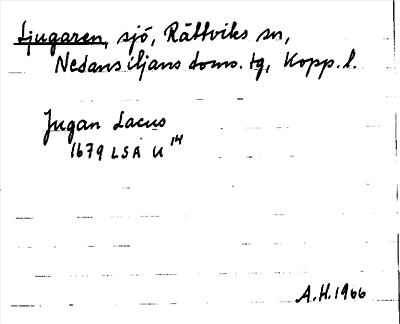 Ljugaren, sjö, Rättviks sn,
Nedansiljans doms. tg, Kopp. l.
Jugan Lacus
1679 LSA U 14
A.H. 1966